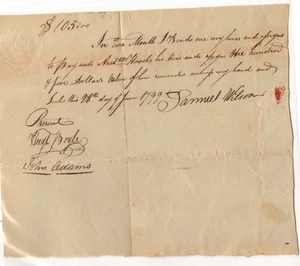 $105.00
In two Months I Binde me my heirs and assigns
to pay unto his heirs and assigns One hundred
& five Dollars Value of him witness my hand and
Seale this 28th day of June 1799 Samuel Wilson
Present
Hugh Boyle
John Adams